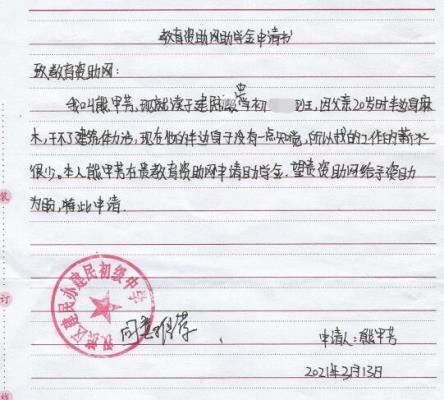 教育资助网助学金申请书
致教育资助网：
我叫熊甲芳，现就读于建民中学初班，因父亲20岁时半边身麻
木，干不了建筑体力活，现在他的半边身子没有一点知觉，所以找的工作的薪水
很少。本人熊甲芳在贵教育资助网申请助学金，望贵资助网给予资助
为盼，特此申请.
民办建民初级中学
同意推荐
申请人：熊甲芳
2021年3月13日
装
订